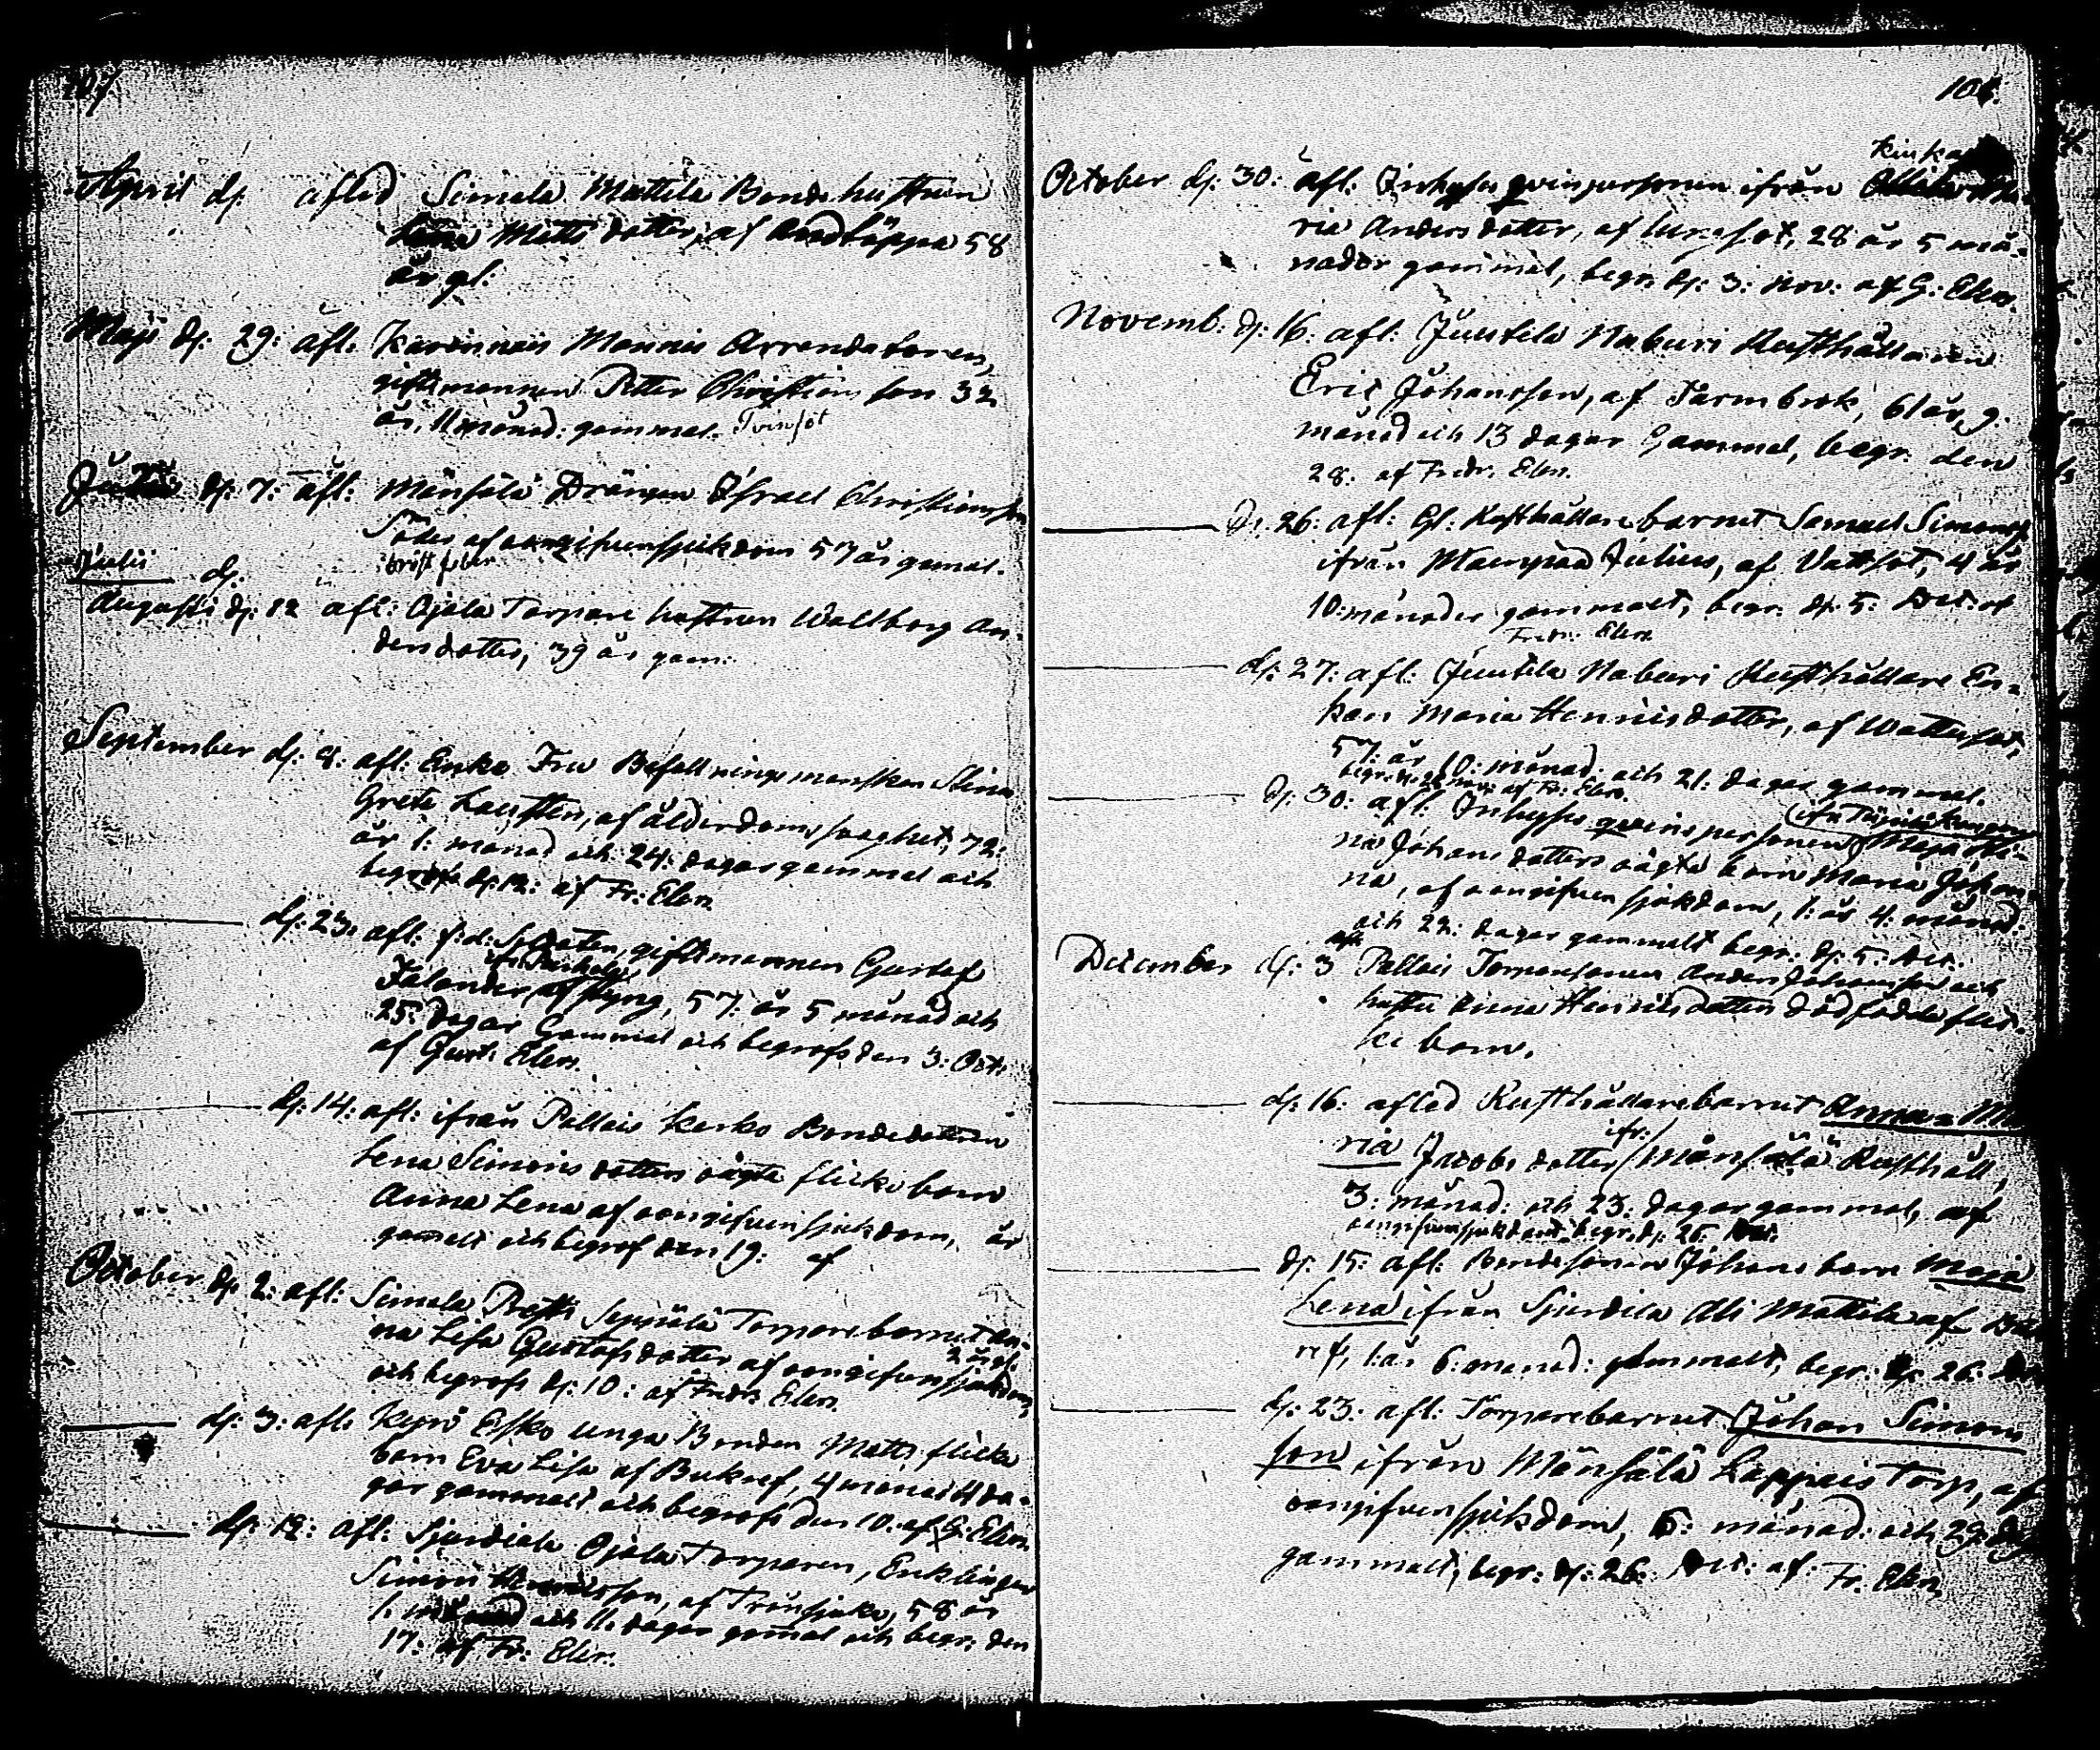 107.
April d: afled Simala Mattila Bonde hustrun
Matts dotter, af Andtäppa 58
år gl:
Maji d: 29: afl: Karinnais Mannis Arrendatoren,
giftemannen Petter Christians son 32
år, 11 månad: gammal. Tvinsot
d: 7: afl: Månsälä Drängen Israel Christiansson
af oangifven sjukdom 57 år gamal.
bröst feber
Julii d:
Augusti d: 12 afl: Ojala Torpare hustrun Walborg An-
dersdotter, 39 år gam:
September d: 9: afl: Enke Fru Befallningsmanskan Stina
Greta af ålderdoms svaghet, 72:
år 1: månad och 24: dagar gammal och
begrofs d: 12: af Fr: Elen
d: 23: afl: f:d: Soldaten, giftemannen Gustaf
Jalander af styng, 57: år 5 månad och
25: dagar Gammal och begrofs den 3: Oct:
af Gust: Elen.
d: 14: afl: ifrån Pallais Kesko Bondedottren
Lena Simons dotters oägta flicke barn
Anna Lena af oangifven sjukdom, år
gamalt och begrof den 19: af
October d: 2: afl: Simala Prusti Seppälä Torparebarnet An-
na Lisa Gustafsdotter af oangifven sjukdom, 2 år gl.
och begrofs d: 10: af Fredr: Elen
d: 3: afl: Keprö Esko unga Bonden Matts flicke
barn Eva Lisa af Bukref, 4 månad 4 da-
gar gammalt och begrofs den 10: af G: Elen
d: 12: afl: Sjurdiala Ojala Torparen, Enklingen
Simon Henricsson, af Trånsjuka, 58 år
1. månad och 11: dagar gamal och begr: den
17: af Fr: Elen.
October d: 30: afl: Inhyses qvinspersonen ifrån
ria Andersdotter, af lungsot, 28 år 5 må-
nader gammal, begr: d: 3: Nov: af G: Elen.
Novemb: d: 16: afl: Juutila Naburi Rusthållaren
Eric Johansson, af Tarmbrok, 61 år, 9.
månad och 13 dagar Gammal, begr. den
28: af Fredr. Elen.
d: 26: afl: Gl: Rusthållare barnet Samuel Simons
ifrån Julius, af Vattsot, 4 år
10: månader gammalt, begr. d: 5: Dec: af
Fredr: Elen
d: 27: afl: Juutila Naburi Rusthållare En-
kan Maria Henricsdotter, af Wattusot,
57: år 10: månad: och 21: dagar gammal.
begr: af Fr: Elen.
d: 30: afl: Inhyses qvinspersonen Maja Sti-
na Johans dotters oägta barn Maria Johan-
na, af oangifven sjukdom, 1: år 4: månad:
och 22: dagar gammalt begr: d: 5: Dec:
December d: 3 afl: Pallais Torparesonen Anders Johansson och
hustru Anna Henricsdotters dödfödda flic-
ke barn.
d: 16: afled Rusthållarebarnet Anna Ma
ria Jacobs dotter ifr: Månsälä Rusthåll,
3: månad: och 23: dagar gammal, af
oangifven sjukdom begr: d: 26: Dec:
d: 15: afl: Bondesonen Johans barn Maja
Lena ifrån Sjurdila Alli Mattila af Buk
ref, 1: år 6: manad: gammalt, begr: d: 26:
d: 23: afl: Torparebarnet Johan Simons
son ifrån Månsälä Lappais Torp, af
oangifven sjukdom, 6: månad: och 29: dag
gammalt, begr: d: 26: Dec: af: Fr. Elen